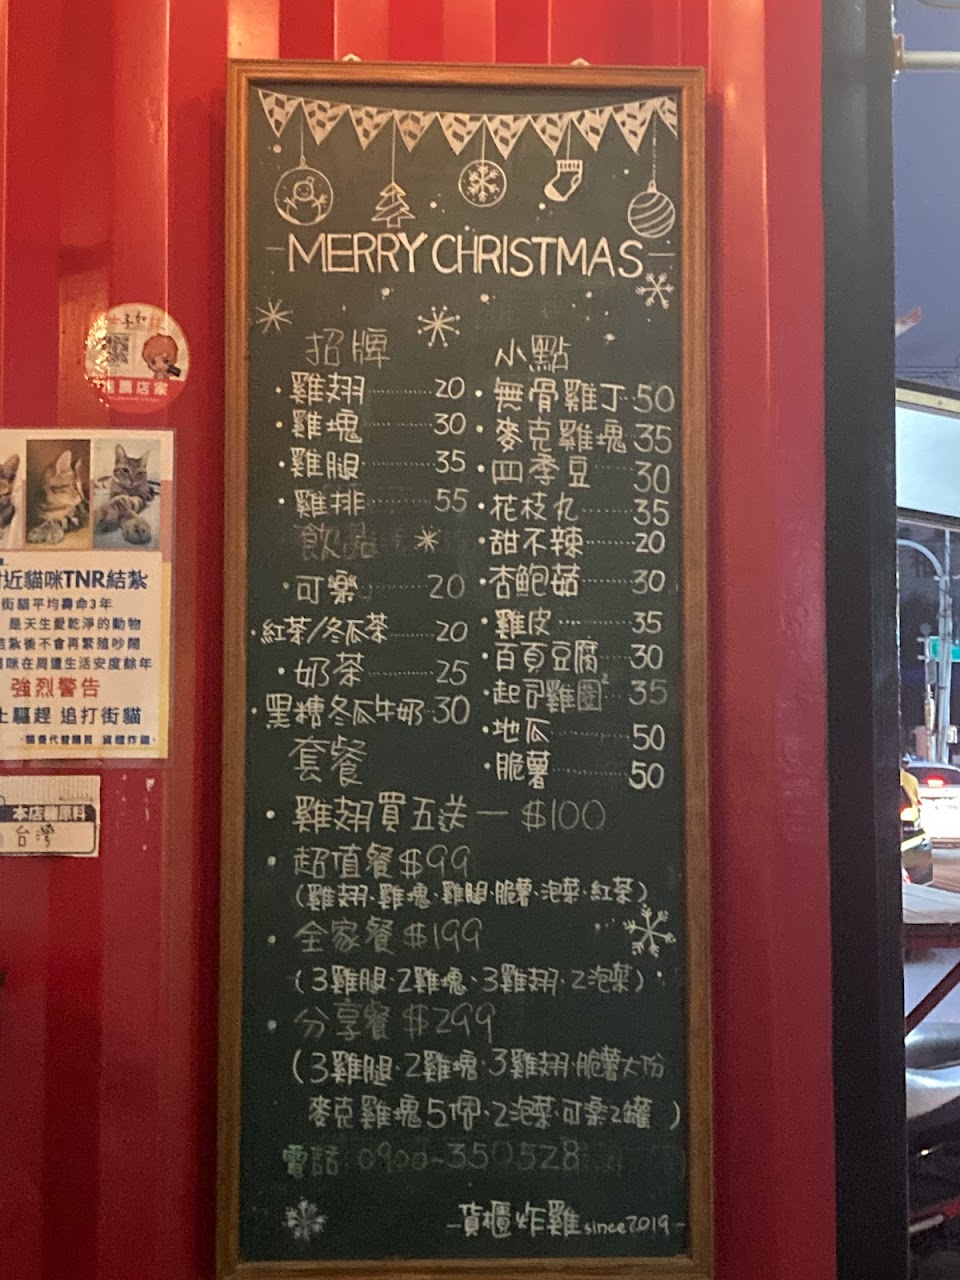 MERRY CHRISTMAS
招牌
·雞翅 20
·雞塊 30
·雞腿 35
·雞排 55
飲品
·可樂 20
·紅茶/冬瓜茶 20
·奶茶 25
·黑糖冬瓜牛奶 30
小點
·無骨雞丁 50
·麥克雞塊 35
·四季豆 30
·花枝丸 35
·甜不辣 20
·杏鮑菇 30
·雞皮 35
·百頁豆腐 30
·起司雞圈 35
·地瓜 50
·脆薯 50
套餐
·雞翅買五送一 $100
·超值餐$99
(雞翅、雞塊、雞腿、脆薯、泡菜、紅茶)
·全家餐$199
(3雞腿、2雞塊、3雞翅、2泡菜)
·分享餐$299
(3雞腿、2雞塊、3雞翅、脆薯大份
麥克雞塊5個、2泡菜、可樂2罐)
電話:0900-350528
-貨櫃炸雞since2019-
推薦店家
附近貓咪TNR結紮
街貓平均壽命3年
是天生愛乾淨的動物
結紮後不會再繁殖吵鬧
貓咪在周遭生活安度餘年
強烈警告
止驅趕 追打街貓
本店雞原料
台灣